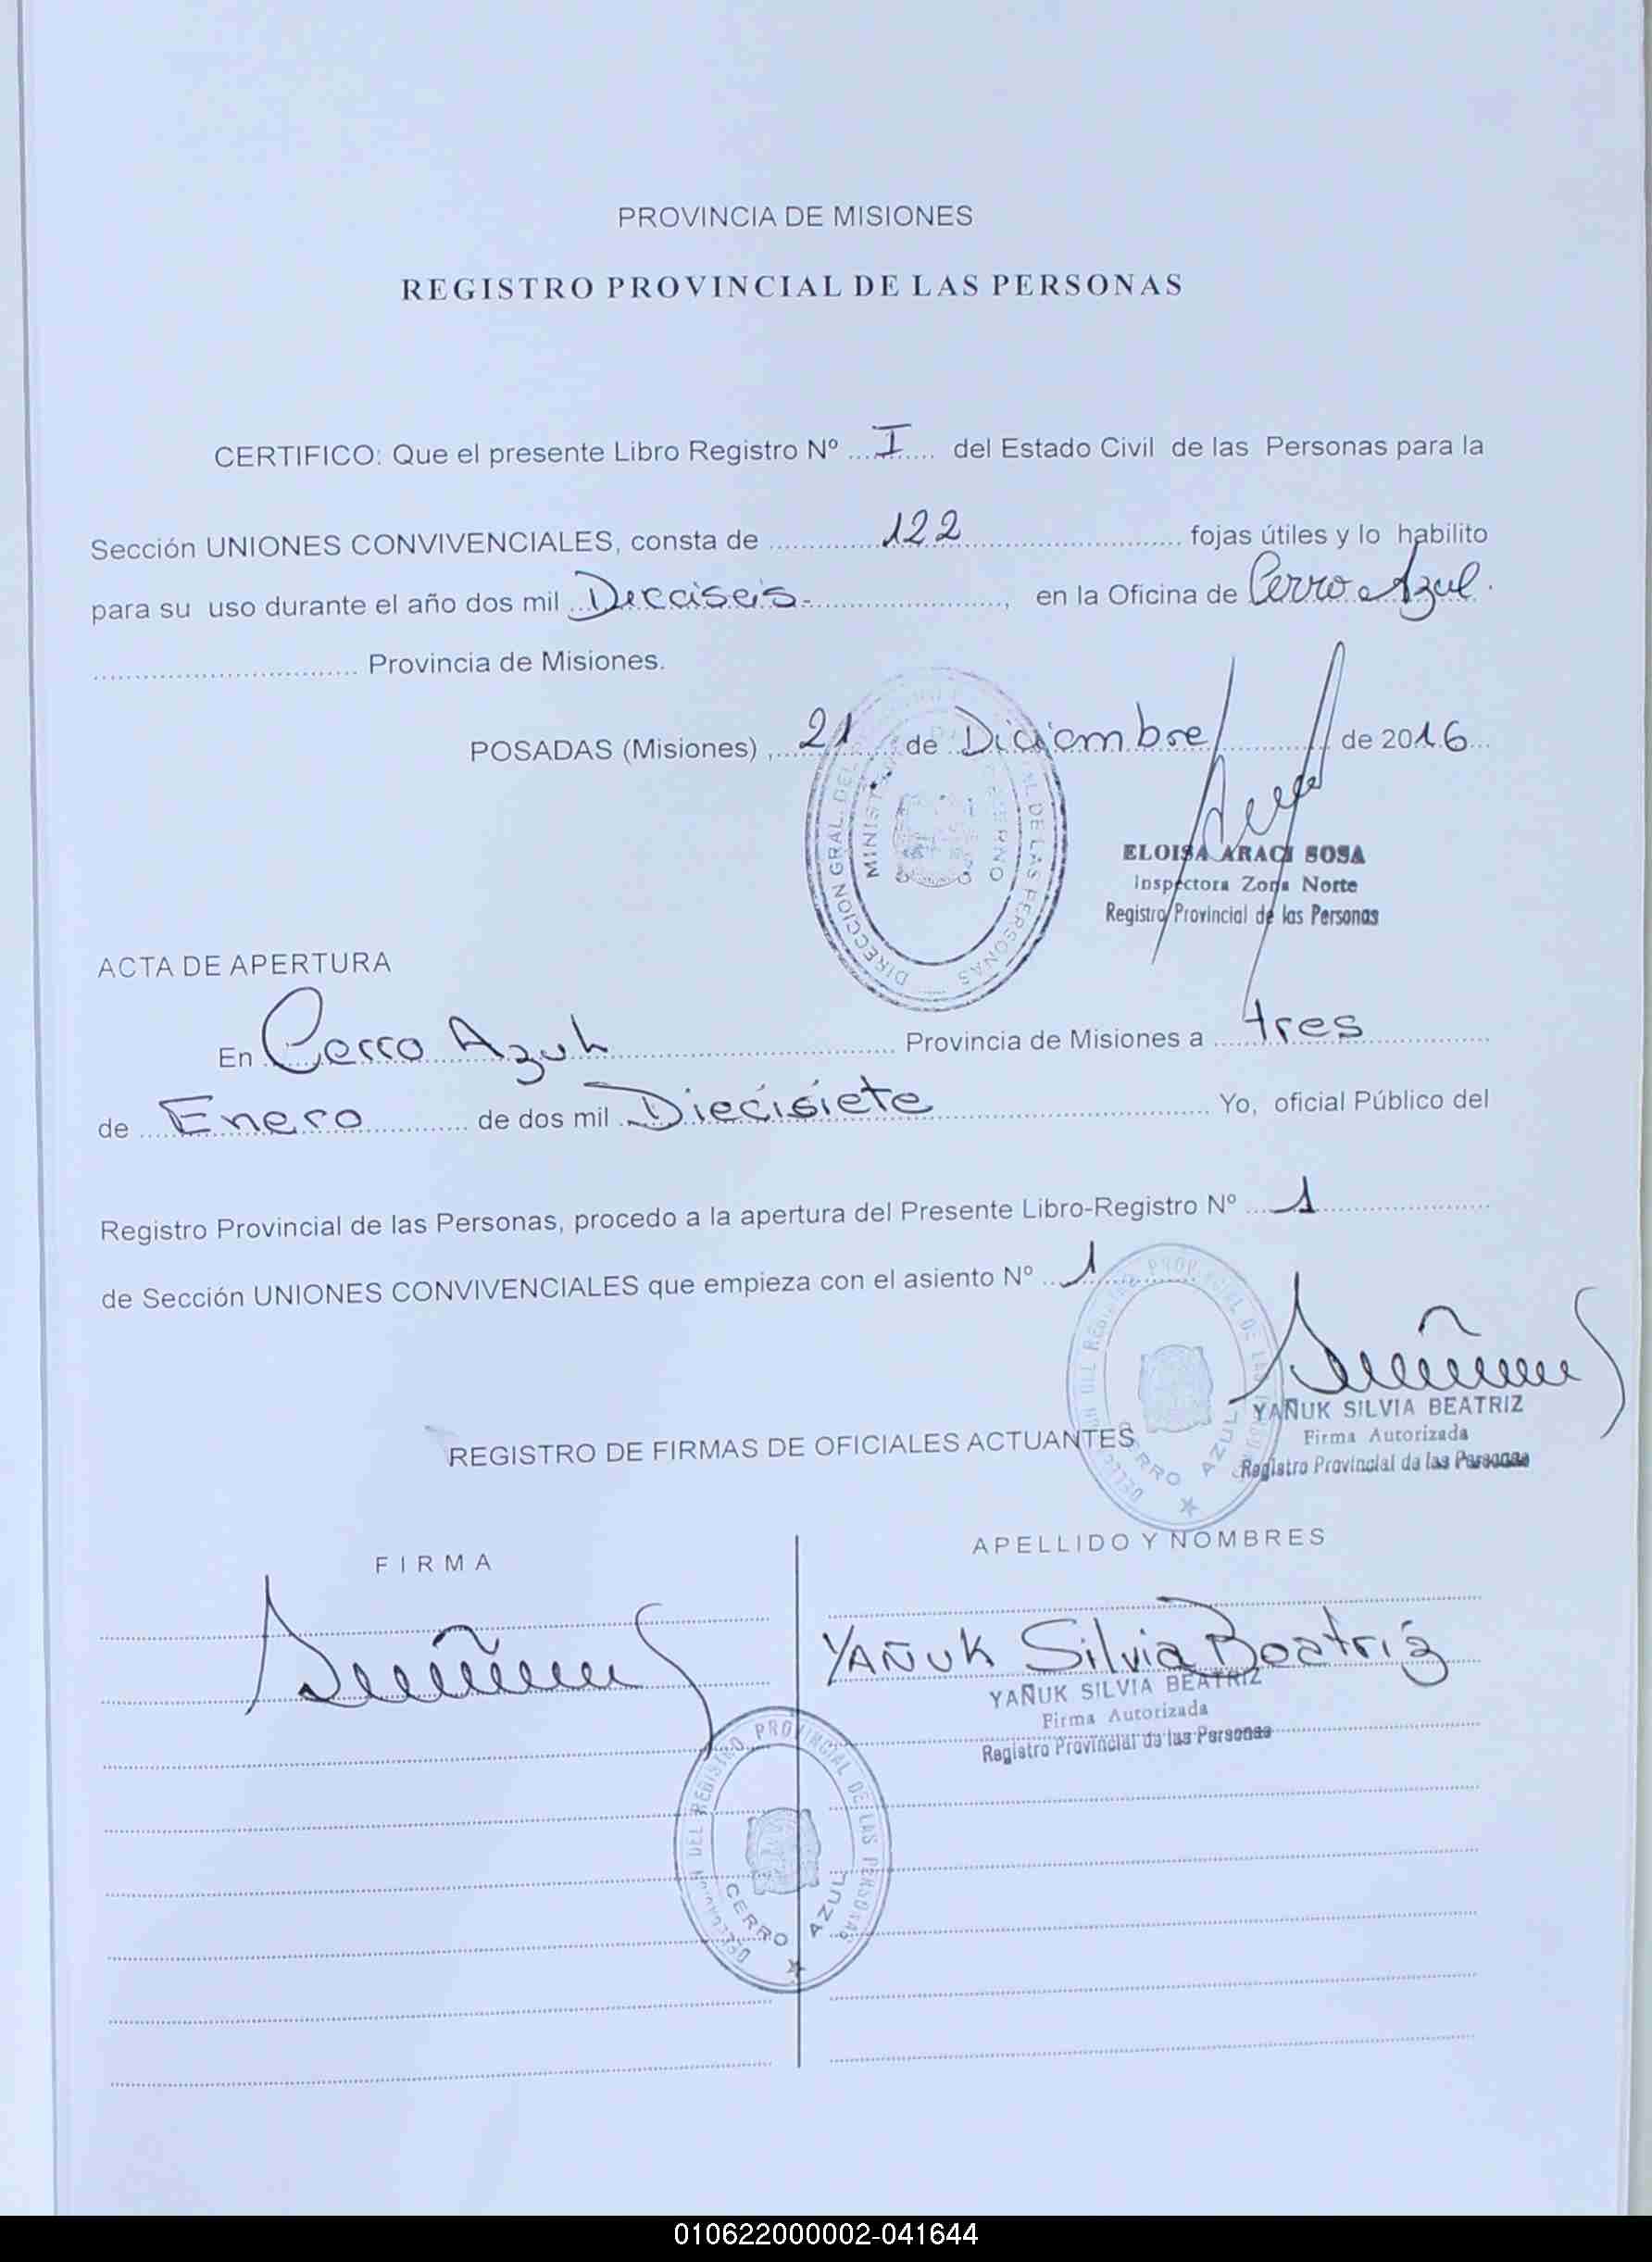 PROVINCIA DE MISIONES
REGISTRO PROVINCIAL DE LAS PERSONAS
CERTIFICO: Que el presente Libro Registro Nº ...I.... del Estado Civil de las Personas para la
Sección UNIONES CONVIVENCIALES, consta de ....122.... fojas útiles y lo habilito
para su uso durante el año dos mil ..Diecciseis-...., en la Oficina de Cerro Azul.
.... Provincia de Misiones.
POSADAS (Misiones) ,...21... de ..Diciembre.... de 2016...
DIRECCION GRAL. DEL
AL DE LAS PERSONAS
ELOISA ARACI SOSA
Inspectora Zona Norte
Registro Provincial de las Personas
ACTA DE APERTURA
En Cerro Azul .... Provincia de Misiones a ....tres....
de ...Enero.... de dos mil ..Diecisiete.... Yo, oficial Público del
Registro Provincial de las Personas, procedo a la apertura del Presente Libro-Registro Nº ...1....
de Sección UNIONES CONVIVENCIALES que empieza con el asiento Nº ...1....
DEL REGISTRO PROVINCIAL DE LAS
CERRO AZUL
YAÑUK SILVIA BEATRIZ
Firma Autorizada
Registro Provincial de las Personas
REGISTRO DE FIRMAS DE OFICIALES ACTUANTES
FIRMA
APELLIDO Y NOMBRES
YAÑUK Silvia Beatriz
YAÑUK SILVIA BEATRIZ
Firma Autorizada
Registro Provincial de las Personas
DELEGACION DEL REGISTRO PROVINCIAL DE LAS PERSONAS
CERRO AZUL
010622000002-041644